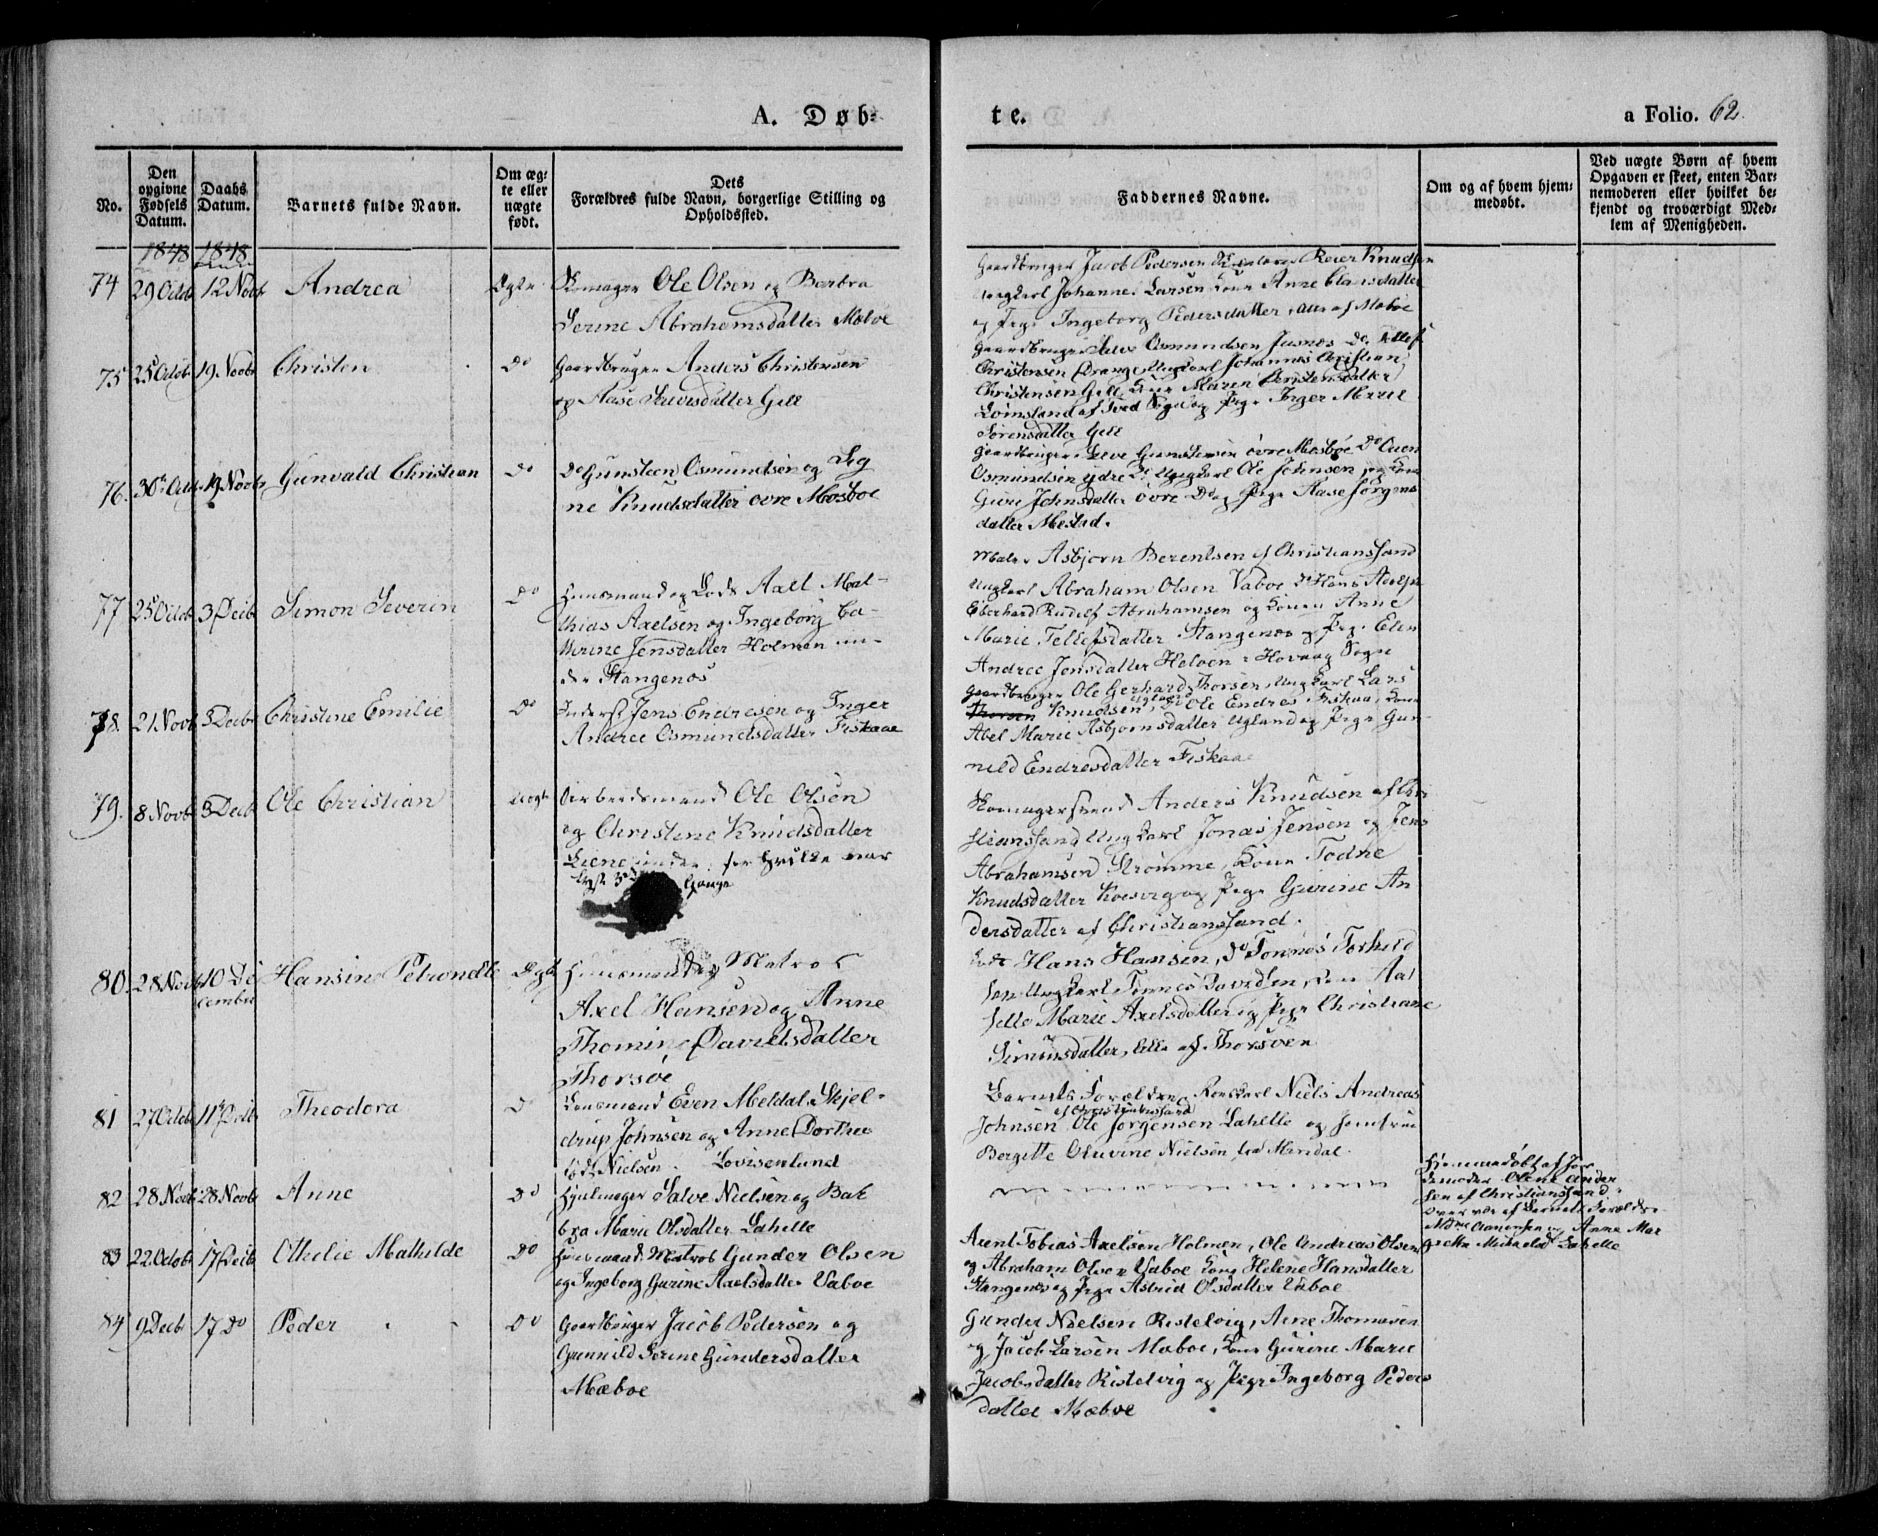 A. Døb=
te.
a Folio. 62.
No.
Den opgivne Fødsels Datum.
Daabs Datum.
Barnets fulde Navn.
Om ægte eller nægte født.
Dets Forældres fulde Navn, borgerlige Stilling og Opholdssted.
Faddernes Navne.
Om og af hvem hjemmedøbt.
Ved uægte Børn af hvem Opgaven er skeet, enten Barnemoderen eller hvilket bekjendt og troværdigt Medlem af Menigheden.
1848 1848
74 29 Octb 12 Novb Andrea Ægte
Skomager Ole Olsen og Barbra
Serine Abrahamsdatter Mæboe
Gaardbruger Jacob Pedersen Reier Knudsen
Johannes Larsen Kone Anne Clausdatter
og Pige Ingeborg Pedersdatter, alle af Mæboe
75 25 Octob 19 Novb Christen Do
Gaardbruger Anders Christensen
og Aase Salvesdatter Gill
Gaardbruger Osmundsen Do Tellef
Christensen Drange, Ungkarl Johannes Christian
Christensen Gill, Kone Maren Christensdatter
Lømsland af Tved Sogn og Pige Inger Marie
Sørensdatter Gill
76. 30te Octb 19 Novb Gunvald Christian Do
Do Gunsteen Osmundsen og Sig
ne Knudsdatter øvre Mosboe
Gaardbruger Salve Gunstensen øvre Mosboe Do Ouen
Osmundsen ydre Do Ungkarl Ole Johnsen og Kone
Guri Johnsdatter øvre Do og Pige Aase Jørgens
datter Mestad.
77 25 Octob 3 Decb Simon Severin Do
Huusmand og Lods Axel Mat-
thias Axelsen og Ingeborg Ca-
thrine Jensdatter Holmen un-
der Stangenæs
Maler Asbjørn Berentsen af Christianssand
Ungkarl Abraham Olsen Vaboe Do Hans Adolph
Eberhard Rudolf Abrahamsen og Konen Anne
Marie Tellefsdatter Stangenæs og Pige Elen
Andrea Jensdatter i Hovaag Sogn
78. 21 Novb 3 Decb Christine Emilie Do
Inderst Jens Endresen og Inger
Andrea Osmundsdatter Fiskaae
Gaardbruger Ole Gerhard Thorsen, Ungkarl Lars
Knudsen Ugland, Ole Endres Fiskaa, Kone
Abel Marie Asbjørnsdatter Ugland og Pige Gun-
nild Endresdatter Fiskaae
79. 8 Novb 3 Decb Ole Christian Uægte
Arbeidsmand Ole Olsen
og Christine Knudsdatter
for hvilke var
lyst 3de Gange
Skomagersvend Anders Knudsen af Chri
stianssand Ungkarl Jonas Jensen og Jens
Abrahamsen Strømme, Kone Todne
Knudsdatter Kosvig og Pige Gurine An
dersdatter af Christianssand.
80. 28 Novb 10 De
cember Hansine Petronelle Ægte
Huusmand og Matros
Axel Hansen og Anne
Thomine Davidsdatter
Thorsøe
Lods Hans Hansen, do Tønnes Torkild
sen Ungkarl Tønnes Davidsen, Kone Aal
Marie Axelsdatter og Pige Christiane
Simonsdatter, alle af Thorsøen
81 27 Octob 11te Decb Theodora Do
Lensmand Even Meldal Skjel-
drup Johnsen og Anne Dorthea
født Nielsen. Lovisenlund
Barnets Forældre, Niels Andreas
Johnsen af Christianssand Ole Jørgensen Lahelle og Jomfrue
Bergitte Oluvine Nielsen fra Mandal
82 28 Novb 28 Novb Anne Do
Hjulmager Salve Nielsen og Bar
bra Marie Olsdatter Lahelle
Hjemmedøbt af Jor
demoder Olene Ander
sen af Christianssand
Barnets Forældre
Mdme Aanensen og Anne Mar
grethe Michaelsd Lahelle
83 22 Octob 17 Decb Othelie Mathilde Do
Huusmand Matros Gunder Olsen
og Ingeborg Gurine Axelsdatter Vaboe
Arent Tobias Axelsen Holmen, Ole Andreas Olsen
og Abraham Olsen Vaboe Kone Helene Hansdatter
Stangenæs og Pige Astrid Olsdatter Vaboe
84 9 Decb 17 Do Peder Do
Gaardbruger Jacob Pedersen og
Gunnild Serine Gundersdatter
Mæboe
Gunder Nielsen Ristelvig, Arne Thomasen
og Jacob Larsen Mæboe, Kone Gurine Marie
Jacobsdatter Ristelvig og Pige Ingeborg Peders
datter Mæboe